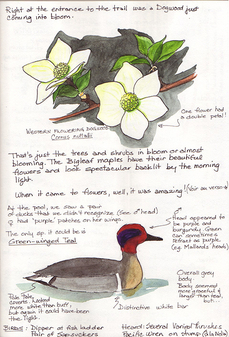 Right at the entrance to the trail was a Dogwood just
coming into bloom.
One flower had
a double petal!
Western Flowering Dogwood
Cornus nuttallii
That's just the trees and shrubs in bloom or almost
blooming. The Bigleaf maples have their beautiful
flowers and look spectacular backlit by the morning
light.
When it came to flowers, well, it was amazing!
At the pool, we saw a pair
of ducks that we didn't recognize (see of head)
I had "purple" patches on her wings.
The only sp it could be is
Green-winged Teal
Head appeared to
be purple and
burgundy. Green
can sometimes
refract as purple,
(eg. Mallards' heads)
Overall grey
body
Body seemed
more graceful &
longer than teal,
but...
coverts looked
more white than buff,
but again it could have been
the light.
Distinctive white bar
Birding: Dipper at fish ladder
Pair of Sapsuckers
Heard: Several Varied Thrushes
Pacific Wren on stump